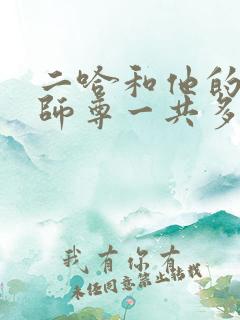 二哈和他的
師尊一共多
我有你有
未经同意禁止转载